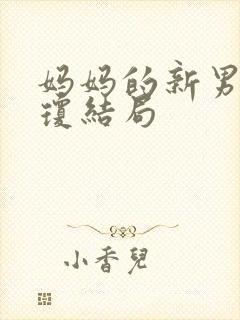 妈妈的新男
瓊结局
小香兒